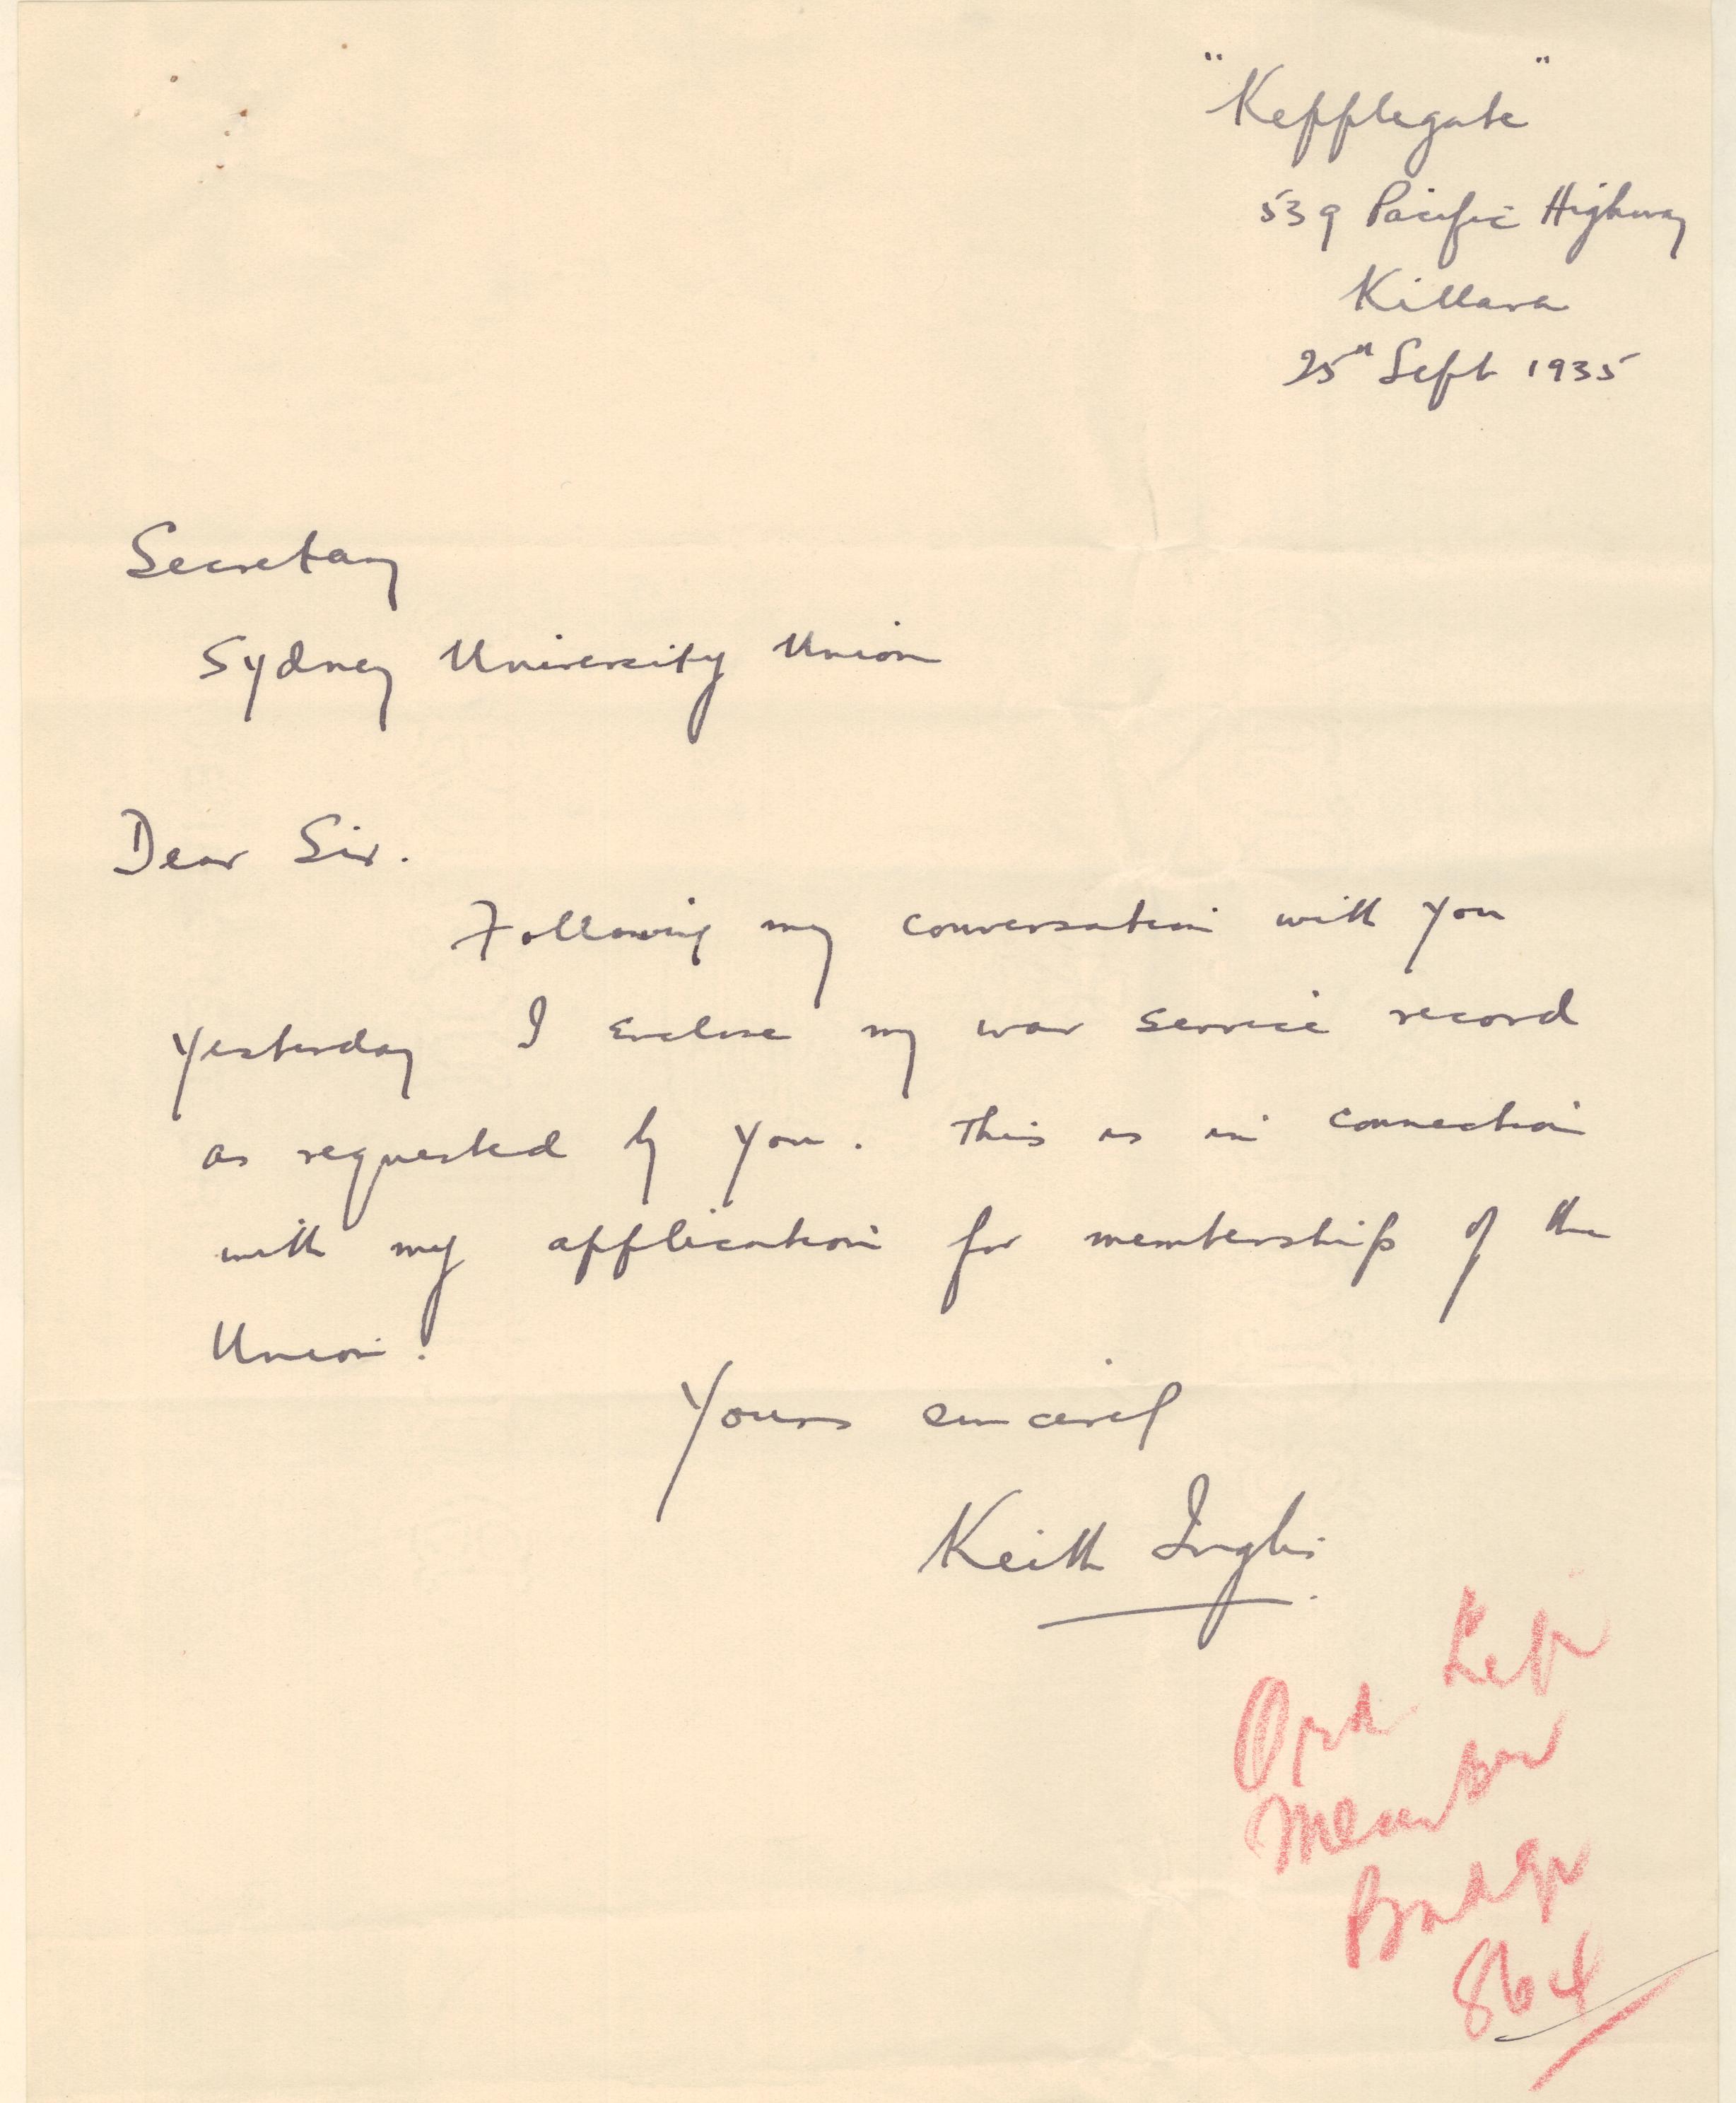 "Kepplegate"
539 Pacific Highway
Killara
25th Sept 1935
Secretary
Sydney University Union
Dear Sir.
Following my conversation with you
yesterday I enclose my war service record
as requested by you. This is in connection
with my application for membership of the
Union.
Yours sincerely
Keith Inglis.
Member
Badge
864